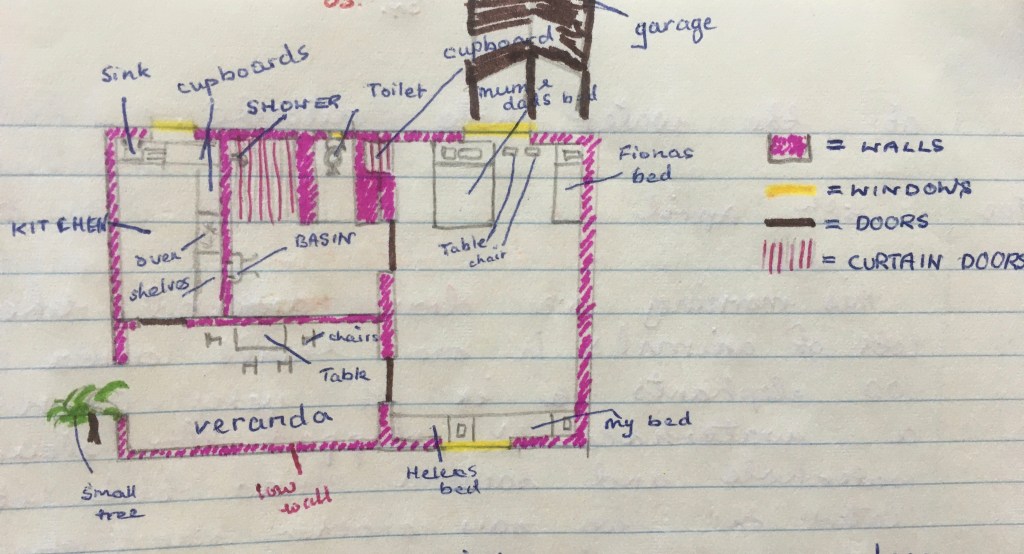 garage
cupboard
Sink
cupboards
SHOWER
Toilet
mum &
dads bed
Fionas
bed
= WALLS
= WINDOWS
= DOORS
= CURTAIN DOORS
KITCHEN
oven
shelves
BASIN
Table
chair
chairs
Table
veranda
my bed
Helens
bed
Small
tree
Low
wall